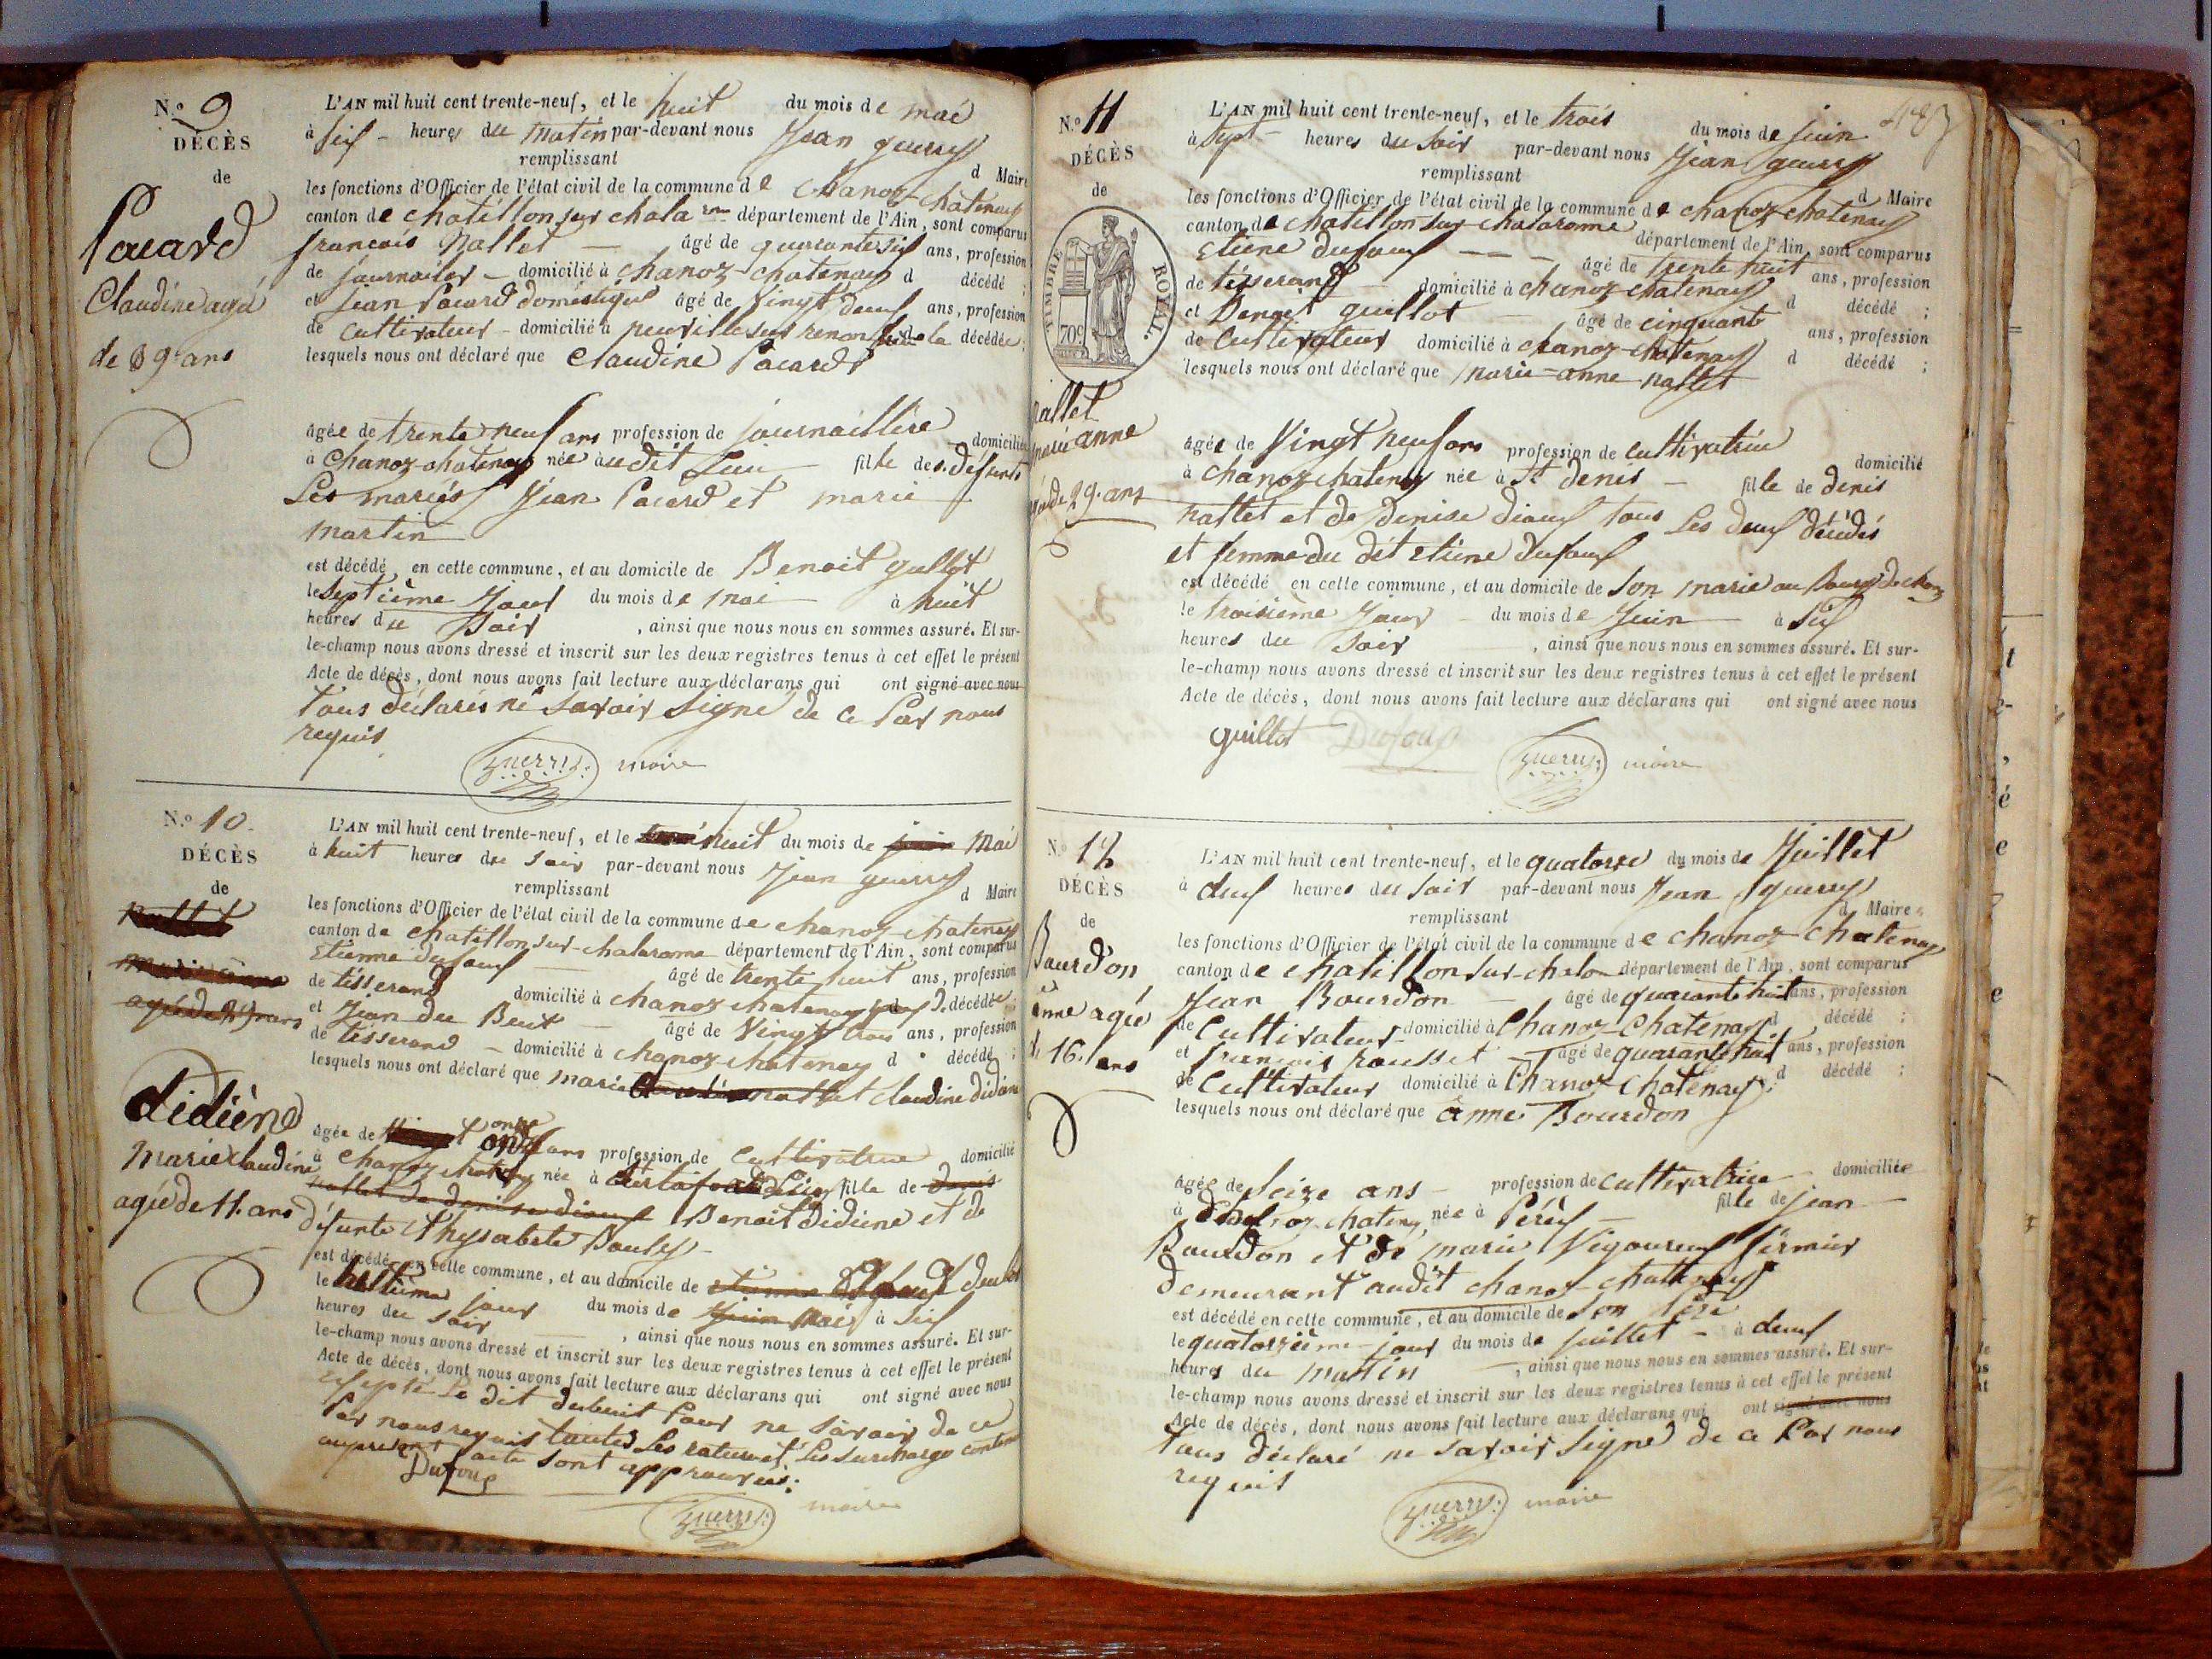 N.º 9
DÉCÈS
de
Pacard
Claudine agé
de 39 ans
L'AN mil huit cent trente-neuf, et le huit du mois de mai
à six heures du matin par-devant nous Jean guerry
remplissant d Maire
les fonctions d'Officier de l'état civil de la commune de chanoz-chatenay
canton de chatillon sur chala département de l'Ain, sont comparus
francois Nallet âgé de quarante six ans, profession
de journalier domicilié à chanoz-chatenay d décédé ;
et Jean Pacard domestique âgé de Vingt deux ans, profession
de cultivateur domicilié à neuville sur renon de la décédée ;
lesquels nous ont déclaré que Claudine Pacard
âgée de trente neuf ans profession de journaillière domicilié
à Chanoz-chatenay née audit Lieu fille des défunts
Les mariés Jean Pacard et marie
martin
est décédé en cette commune, et au domicile de Benoit gullot
le septième Jour du mois de mai à huit
heures du Soir , ainsi que nous nous en sommes assuré. Et sur-
le-champ nous avons dressé et inscrit sur les deux registres tenus à cet effet le présent
Acte de décès, dont nous avons fait lecture aux déclarans qui ont signé avec nous
tous déclarés ne savoir signé de ce Par nous
requis
guerry maire
N.º 10
DÉCÈS
de
Nallet
marie anne
agée de 29 ans
didiène
Marie claudine
agée de 11 ans
L'AN mil huit cent trente-neuf, et le huit du mois de juin Mai
à huit heures du soir par-devant nous Jean guerry
remplissant d Maire
les fonctions d'Officier de l'état civil de la commune de chanoz-chatenay
canton de chatillon-sur-chalarome département de l'Ain, sont comparus
Etienne dufour âgé de trente huit ans, profession
de tisserand domicilié à chanoz chatenay décédé
et Jean du Beut âgé de Vingt trois ans, profession
de tisserand domicilié à chanoz chatenay d décédé ;
lesquels nous ont déclaré que marie nallet Claudine didiène
âgée de onze ans profession de Cultivatrice domicilié
à Chanoz chatenay née à fille de denis
nallet de denise dioux Benoit Didiène et de
défunte Bouley
est décédé en cette commune, et au domicile de
le huitième jour du mois de juin Mai à six
heures du soir , ainsi que nous nous en sommes assuré. Et sur-
le-champ nous avons dressé et inscrit sur les deux registres tenus à cet effet le présent
Acte de décès, dont nous avons fait lecture aux déclarans qui ont signé avec nous
excepté Le dit dubeut Pour ne savoir de ce
Par nous requis toutes Les ratures et Les surcharge contenu
au présent acte sont approuvées.
Dufoux
guerry maire
483
N.º 11
DÉCÈS
de
TIMBRE ROYAL.
70c
nallet
marie anne
agé de 29. ans
L'AN mil huit cent trente-neuf, et le trois du mois de juin
à Sept heures du Soir par-devant nous Jean guerry
remplissant d Maire
les fonctions d'Officier de l'état civil de la commune de chanoz-chatenay
canton de chatillon sur chalaronne département de l'Ain, sont comparus
Etiene dufoux âgé de trente huit ans, profession
de tisserand domicilié à chanoz-chatenay d décédé ;
et Benoit guillot âgé de cinquant ans, profession
de Cultivateur domicilié à chanoz-chatenay d décédé ;
lesquels nous ont déclaré que marie-anne nallet
âgée de Vingt neuf ans profession de cultivatrice domicilié
à chanoz chatenay née à St denis fille de denis
nallet et de Denise dioux tous Les deux décédés
et femme du dit etiene dufoux
est décédé en cette commune, et au domicile de Son marie au Bourg de chanoz
le troisième Jour du mois de Juin à Six
heures du Soir , ainsi que nous nous en sommes assuré. Et sur-
le-champ nous avons dressé et inscrit sur les deux registres tenus à cet effet le présent
Acte de décès, dont nous avons fait lecture aux déclarans qui ont signé avec nous
guillot Dufoux guerry maire
N.º 12
DÉCÈS
de
Bourdon
anne agée
de 16. ans
L'AN mil huit cent trente-neuf, et le quatorze du mois de Juillet
à deux heures du Soir par-devant nous Jean guerry
remplissant d Maire
les fonctions d'Officier de l'état civil de la commune de chanoz-chatenay
canton de chatillon sur-chala département de l'Ain, sont comparus
Jean Bourdon âgé de quarante huit ans, profession
de Cultivateur domicilié à Chanoz-Chatenay d décédé ;
et francois rousset âgé de quarante huit ans, profession
de Cultivateur domicilié à Chanoz-Chatenay d décédé ;
lesquels nous ont déclaré que anne Bourdon
âgée de Seize ans profession de cultivatrice domiciliée
à Chanoz-chateny née à Péréx fille de jean
Bourdon et de marie Vigoureux fermier
demeurant audit chanoz-chattenay
est décédé en cette commune, et au domicile de son père
le quatorzième jour du mois de juillet à deux
heures du matin , ainsi que nous nous en sommes assuré. Et sur-
le-champ nous avons dressé et inscrit sur les deux registres tenus à cet effet le présent
Acte de décès, dont nous avons fait lecture aux déclarans qui ont signé avec nous
tous déclaré ne savoir signé de ce Par nous
requis
guerry maire